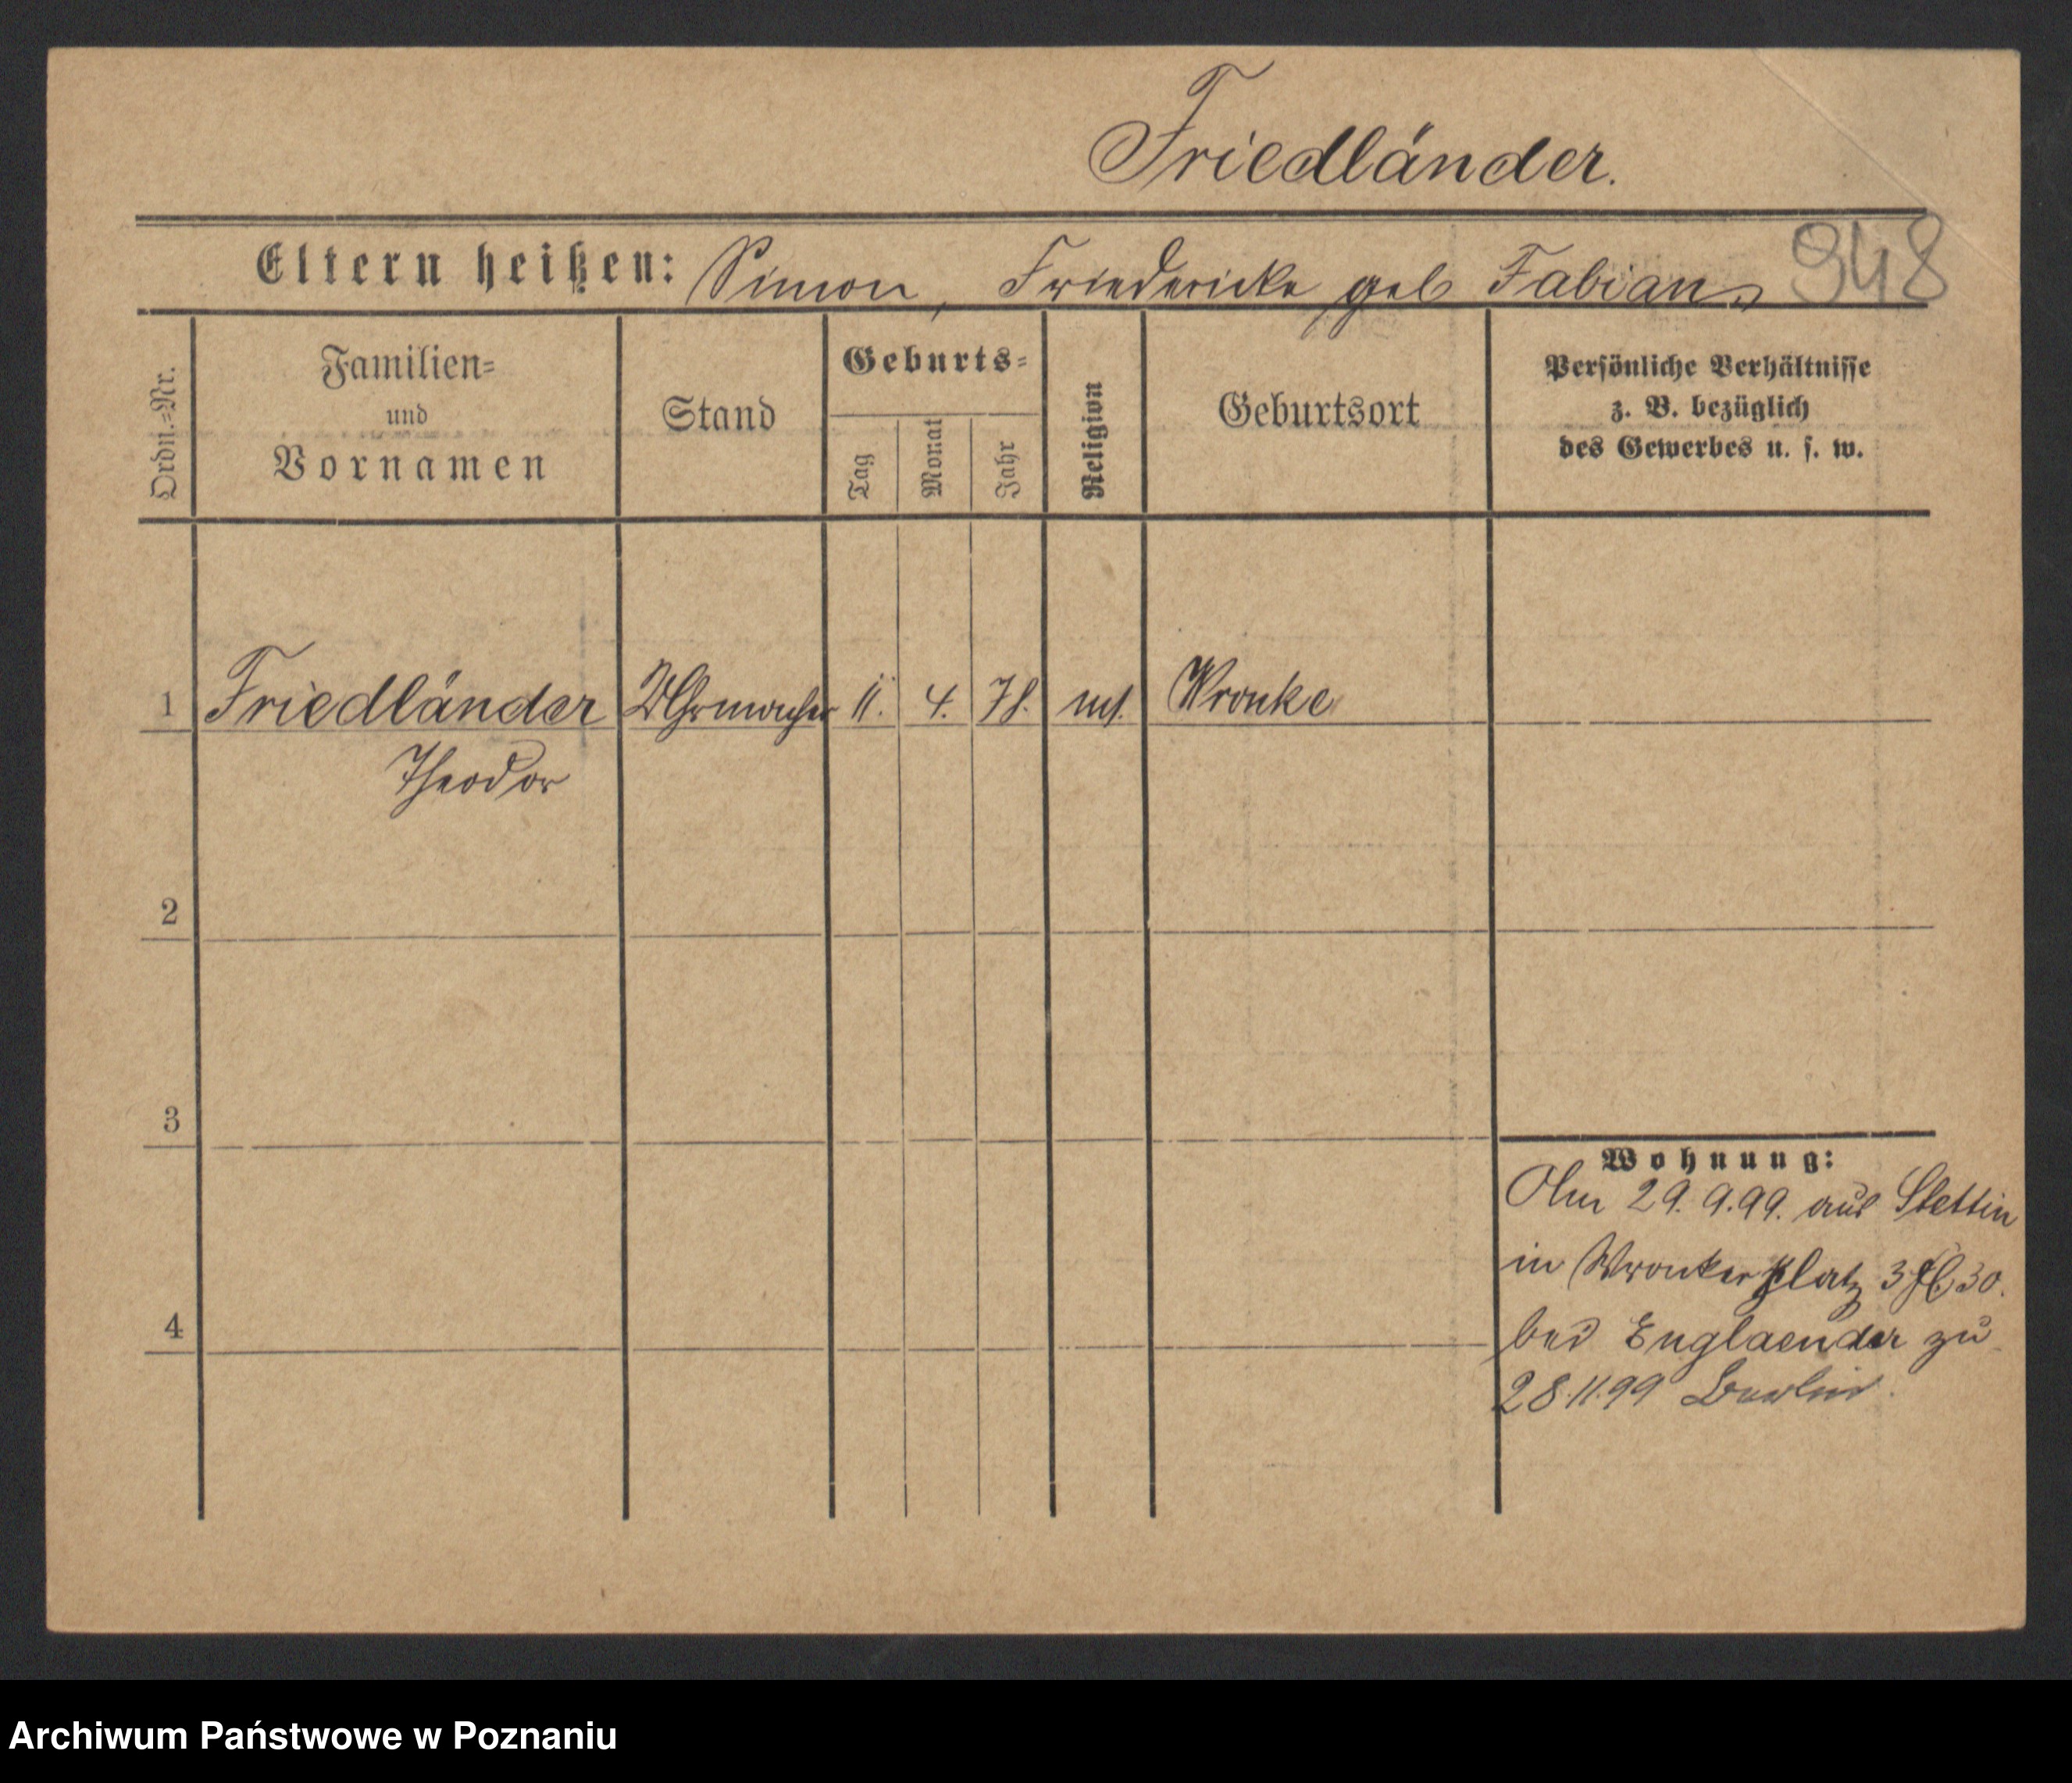 Friedländer.
Eltern heißen: Simon, Friedericke geb Fabian
948
Ordn.=Nr.
Familien=
und
Vornamen
Stand
Geburts=
Tag
Monat
Jahr
Religion
Geburtsort
Persönliche Verhältnisse
z. B. bezüglich
des Gewerbes u. s. w.
1 Friedländer Uhrmacher 11. 4. 78. Wronke
Theodor
2
3
Wohnung:
29. 9. 99. aus Stettin
in Wronkerplatz 3 30.
4
bei Englaender zu
28.11.99 Berlin.
Archiwum Państwowe w Poznaniu